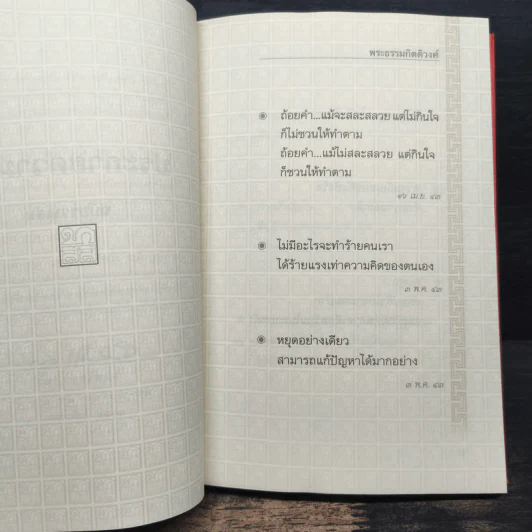 พระธรรมกิตติวงศ์
◉ ถ้อยคำ...แม้จะสละสลวย แต่ไม่กินใจ
ก็ไม่ชวนให้ทำตาม
ถ้อยคำ...แม้ไม่สละสลวย แต่กินใจ
ก็ชวนให้ทำตาม
เม.ย. ๔๓
◉ ไม่มีอะไรจะทำร้ายคนเรา
ได้ร้ายแรงเท่าความคิดของตนเอง
๓ พ.ค. ๔๓
◉ หยุดอย่างเดียว
สามารถแก้ปัญหาได้มากอย่าง
๓ พ.ค. ๔๓